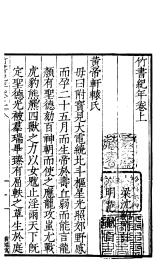 竹書紀年卷上
梁沈約附註
明范
黃帝軒轅氏
母曰附寶見大電繞北斗樞星光照郊野感
而孕二十五月而生帝於壽丘弱而能言龍
顏有聖德劾百神朝而使之應龍攻蚩尤戰
虎豹熊羆四獸之力以女魃止淫雨天下既
定聖德光被羣瑞畢臻有屈軼之草生於庭